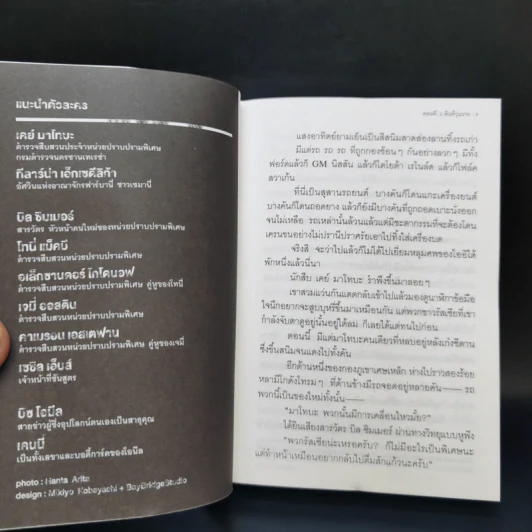 แนะนำตัวละคร
เคย์ มาโทบะ
ตำรวจสืบสวนประจำหน่วยปราบปรามพิเศษ
กรมตำรวจนครซานเทเรซ่า
ทีลาร์น่า เอ็กเซดีลิก้า
อัศวินแห่งอาณาจักรฟาร์บานี ชาวเซมานี
บิล ซิมเมอร์
สารวัตร หัวหน้าคนใหม่ของหน่วยปราบปรามพิเศษ
โทนี่ แม็คบี
ตำรวจสืบสวนหน่วยปราบปรามพิเศษ
อเล็กซานดอร์ โกโดนอฟ
ตำรวจสืบสวนหน่วยปราบปรามพิเศษ คู่หูของโทนี่
เจมี่ ออสติน
ตำรวจสืบสวนหน่วยปราบปรามพิเศษ
คาเมรอน เอสเตฟาน
ตำรวจสืบสวนหน่วยปราบปรามพิเศษ คู่หูของเจมี่
เซซิล เอ็ปส์
เจ้าหน้าที่ชันสูตร
บิซ โอนีล
สายข่าวผู้ซึ่งอุปโลกน์ตนเองเป็นสาธุคุณ
เคนนี่
เป็นทั้งเลขาและบอดี้การ์ดของโอนีล
photo : Hanta Arita
design : Mikiyo Kobayashi + BayBridgeStudio
แสงอาทิตย์ยามเย็นเป็นสีสนิมสาดส่องลานทิ้งรถเก่า
มีแต่รถ รถ รถ ที่ถูกกองซ้อนๆ กันอย่างลวกๆ มีทั้ง
ฟอร์ดแล้วก็ GM นิสสัน แล้วก็โตโยต้า เรโนล์ต แล้วก็โฟล์ค
สวาเก้น
ที่นี่เป็นสุสานรถยนต์ บางคันก็โดนแกะเครื่องยนต์
บางคันก็โดนถอดยาง แล้วก็ยังมีบางคันที่ถูกถอดเบาะนั่งออก
จนไม่เหลือ รถเหล่านั้นล้วนแต่มีชะตากรรมที่จะต้องโดน
เครนขนอย่างไม่ปรานีปราศรัยเอาไปทิ้งใส่เครื่องบด
จริงสิ จะว่าไปแล้วก็ไม่ได้ไปเยี่ยมหลุมศพของโอยีได้
พักหนึ่งแล้วนี่นา
นักสืบ เคย์ มาโทบะ รำพึงขึ้นมาลอยๆ
เขาสวมแว่นกันแดดกลับเข้าไปแล้วมองดูนาฬิกาข้อมือ
ใจนึกอยากจะสูบบุหรี่ขึ้นมาเหมือนกัน แต่พวกชาวรัสเซียที่เขา
กำลังจับตาดูอยู่นั้นอยู่ใต้ลม ก็เลยได้แต่ทนไปก่อน
ตอนนี้ มีแต่มาโทบะคนเดียวที่หลบอยู่หลังเก๋งซีดาน
ซึ่งขึ้นสนิมจนแดงไปทั้งคัน
อีกด้านหนึ่งของกองภูเขาเศษเหล็ก ห่างไปราวสองร้อย
หลามีโกดังโทรมๆ ที่ด้านข้างมีรถจอดอยู่หลายคัน── รถ
พวกนี้เป็นของใหม่ทั้งนั้น──
"มาโทบะ พวกนั้นมีการเคลื่อนไหวมั้ย?"
ได้ยินเสียงสารวัตร บิล ซิมเมอร์ ผ่านทางวิทยุแบบหูฟัง
"พวกรัสเซียน่ะเหรอครับ? ก็ไม่มีอะไรเป็นพิเศษนะ
แต่ทำหน้าเหมือนอยากกลับไปดื่มสักแก้วนะครับ"